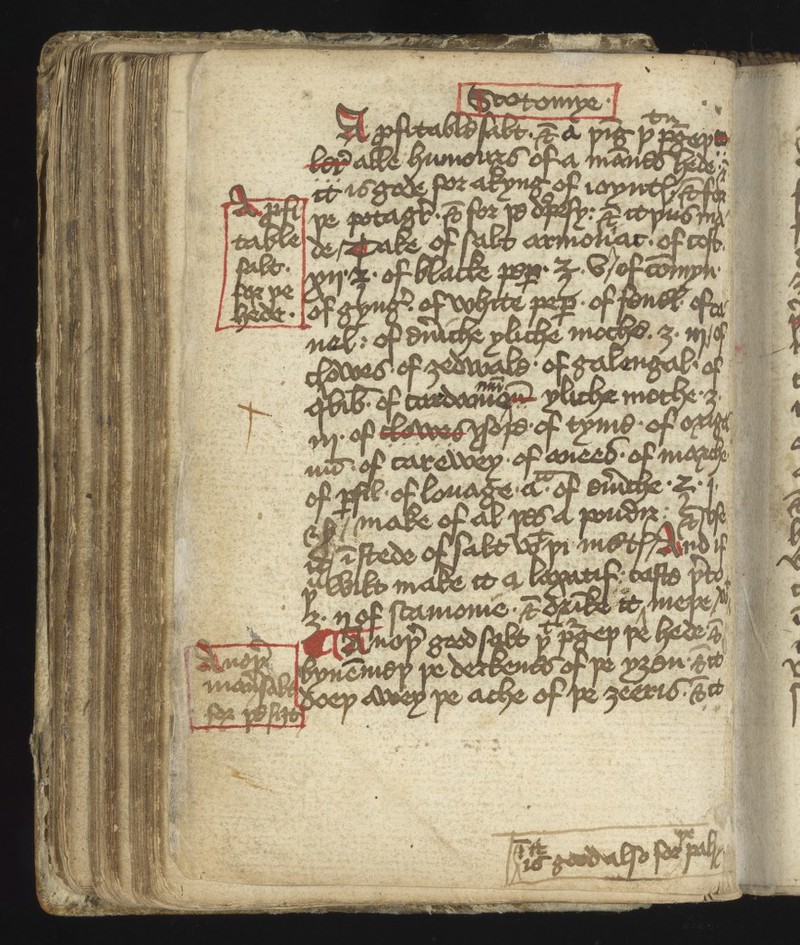 Scotomye·
A profitable salt· & a þing þt purgeþ
alle humours of a mannes hede·
it is gode for akyng of ioynth· & for
þe potagr̉· & for þe dropesy· & it þus ma
de / Take of salt armoniac· of cost
xii· ʒ· of blacke pep̲· ʒ· v / of comyn·
of gyng̉· of white pep̲· of fenel· of ca
nel· of eu̾iche yliche moche· ʒ· iii / of
clowes· of zedwale· of galengal· of
q̄bib̉· of cardamom yliche moche· ʒ·
iii· of clowes ysope· of tyme· of orig
of carewey· of aneed· of marche
of p̲sil· of louage· of eu̾iche· ʒ· j·
make of al þes a poudr̉· & vse
it ī stede of salt wt þi mete / And if
þu wilt make it a laxatif· caste þ̉to
ʒ· ii of scamonie· & drinke it
Anoþ̉ good salt þt purgeþ þe hede &
bynemeþ þe derkenes of þe yʒen· & it
doeþ awey þe ache of þe ʒeeris· & it
A profi
table
salt·
for þe
hede·
Anoþ̉
man̄ salt
for þe siʒt
it is good also for þe pals